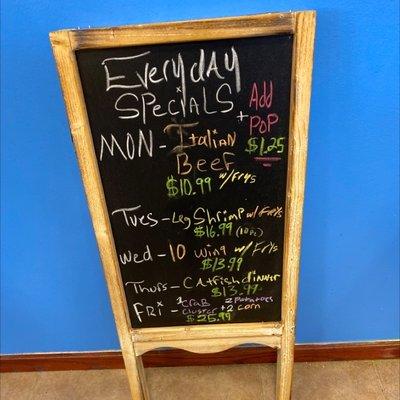 Everyday
Specials
+ Add
POP
$1.25
MON - Italian
Beef
$10.99 w/ Frys
Tues - Leg Shrimp w/ Frys
$16.99 (10pc)
Wed - 10 wing w/ Frys
$13.99
Thurs - Catfish dinner
$13.99
FRi - 1 crab 2 Potatoes
cluster + 2 corn
$25.99